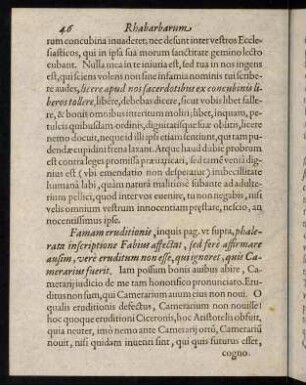 46 Rhabarbarum
rum concubina inuaderet; nec desunt inter vestros Eccle-
siasticos, qui in ipsa sua morum sanctitate gemino lecto
cubant. Nulla mea in te iniuria est, sed tua in nos ingens
est, qui sciens volens non sine infamia nominis tui scribe-
re audes, licere apud nos sacerdotibus ex concubinis li-
beros tollere, libêre, debebas dicere, sicut vobis libet falle-
re, & bonis omnibus interitum moliri; libet, inquam, pe-
tulcis quibusdam ordinis, dignitatisque suæ oblitis, licere
nemo docuit, neque id illi ipsi etiam sentiunt, qui tam pu-
dendæ cupidini frena laxant. Atque haud dubiè probrum
est contra leges promissa præuaricari, sed tamē veniâ dig-
nius est (vbi emendatio non desperatur) imbecillitate
humanâ labi, quàm naturâ malitiosè subante ad adulte-
rium pellici, quod intervos euenire, tu non negabis, nisi
velis omnium vestrum innocentiam præstare, nescio, an
nocentissimus ipse.
Famam eruditionis, inquis pag. vt supra, phale-
rata inscriptione Fabius affectat, sed ferè affirmare
ausim, verè eruditum non esse, qui ignoret, qui Ca-
merarius fuerit. Iam possum bonis auibus abire, Ca-
merarij iudicio de me tam honorifico pronunciato. Eru-
ditus non sum, qui Camerarium auum eius non noui. O
qualis eruditionis defectus, Camerarium non nouisse!
hoc quoque eruditioni Ciceronis, hoc Aristotelis obfuit,
quia neuter, imò nemo ante Camerarij ortū, Camerariū
nouit, nisi quidam inuenti sint, qui quis futurus esset,
cogno.